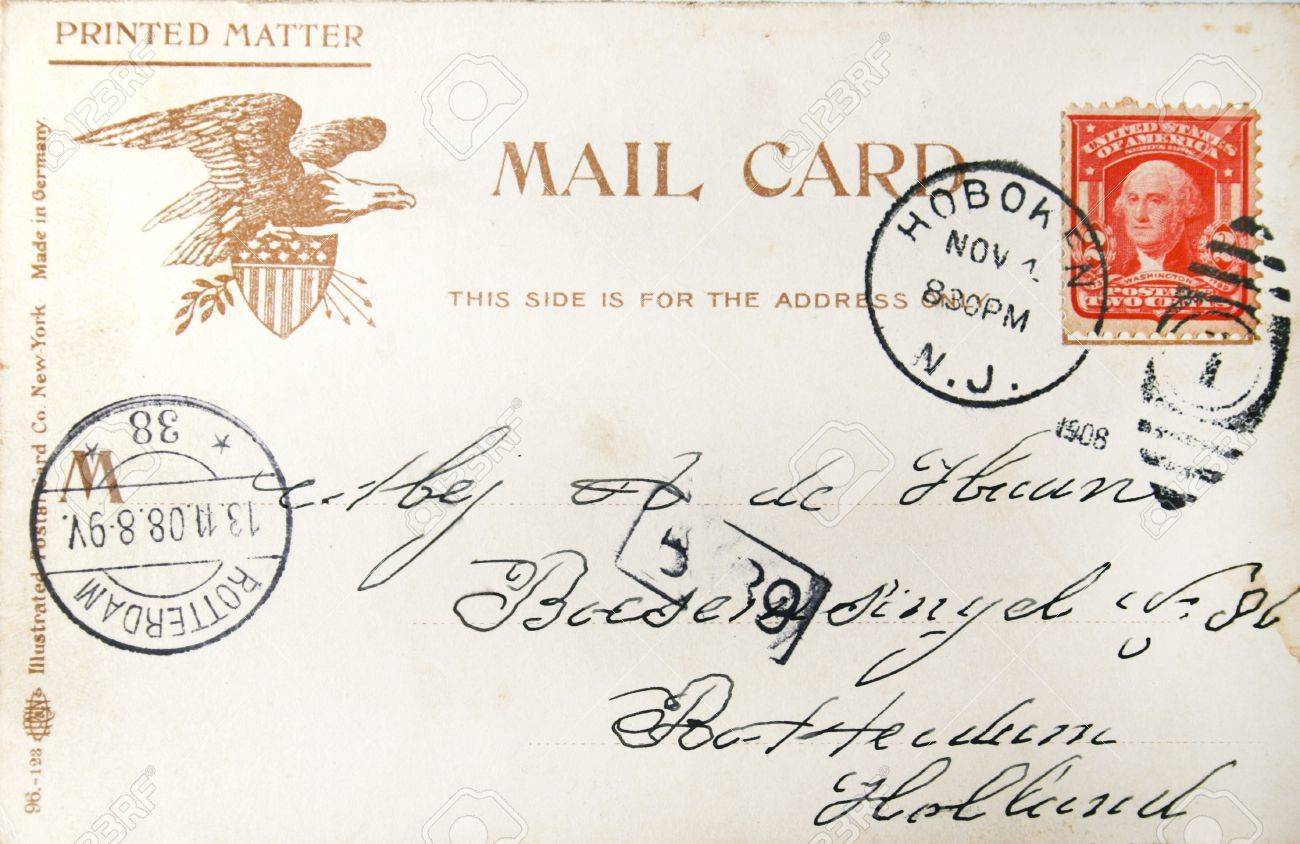 PRINTED MATTER
MAIL CARD
THIS SIDE IS FOR THE ADDRESS ONLY
UNITED STATES
OF AMERICA
WASHINGTON
POSTAGE
2 TWO CENTS 2
HOBOKEN
NOV
830PM
N.J.
1908
1
ROTTERDAM
13.11.08.8-9V.
38
96.-123 Illustrated Postal Card Co. New-York Made in Germany.
de Haan
Rotterdam
Holland
123RF